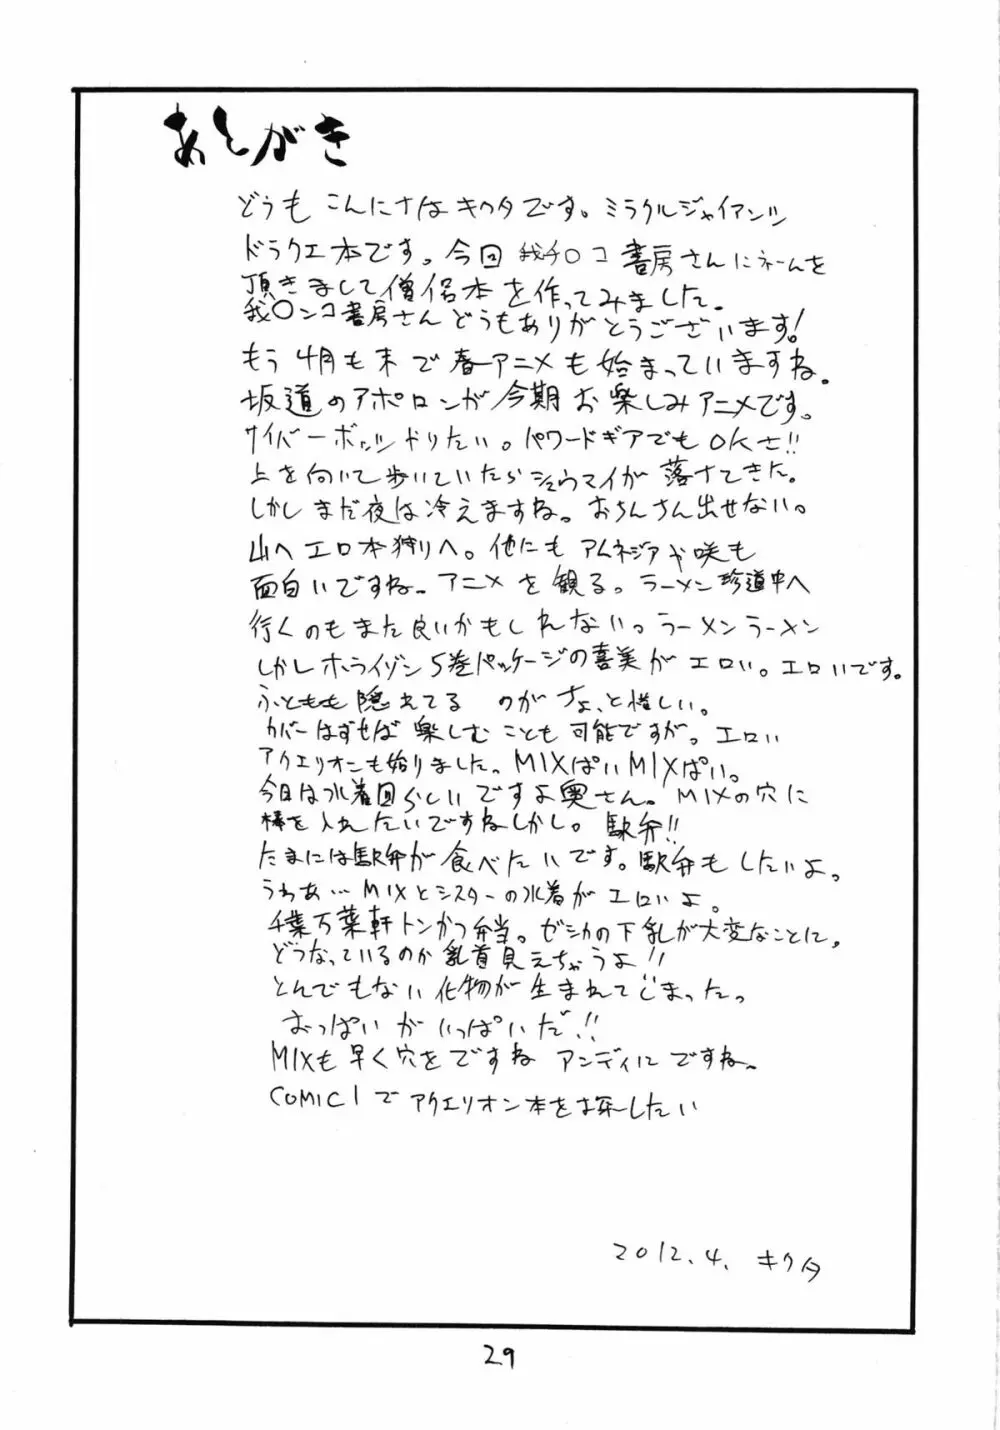 あとがき
どうも こんにナは キクタです。ミラクルジャイアンツ
ドラクエ本です。今回 我チ〇コ書房さんにネームを
頂きまして僧侶本を作ってみました。
我〇ンコ書房さんどうもありがとうございます!
もう4月も末で春アニメも始まっていますね。
坂道のアポロンが今期お楽しみアニメです。
サイバーボッツドりたい。パワードギアでもOKさ!!
上を向いて歩いていたらシュウマイが落ナてきた。
しかしまだ夜は冷えますね。おちんさん出せない。
山へエロ本狩りへ。他にもアムネジアや咲も
面白いですね。アニメを観る。ラーメン珍道中へ
行くのもまた良いかもしれない。ラーメンラーメン
しかしホライゾン5巻パッケージの喜美がエロい。エロいです。
ふともも隠れてる のがちょっと惜しい。
カバーはずせば楽しむことも可能ですが。エロい
アクエリオンも始りました。MIXぱいMIXぱい。
今日は水着回らしいですよ奥さん。MIXの穴に
棒を入れたいですねしかし。駅弁!!
たまには駅弁が食べたいです。駅弁もしたいよ。
うわあ…MIXとシスターの水着がエロいよ。
千葉万葉軒トンかつ弁当。ゼシカの下乳が大変なことに。
どうなっているのか乳首見えちゃうよ!!
とんでもない化物が生まれてしまった。
おっぱいがいっぱいだ!!
MIXも早く穴をですね アンディにですね。
COMIC1でアクエリオン本を探したい
2012.4. キクタ
29